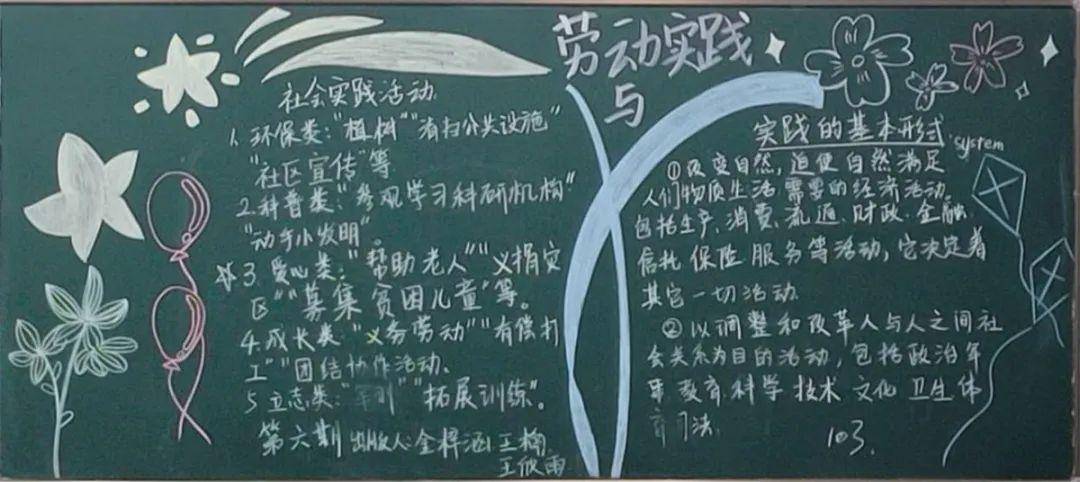 劳动实践
与
社会实践活动
1、环保类:"植树""清扫公共设施"
"社区宣传"等
2.科普类:"参观学习科研机构"
"动手小发明"。
3 爱心类:"帮助老人""义捐灾
区""募集贫困儿童"等。
4.成长类"义务劳动""有偿打
工""团结协作活动。
5 立志类:"军训""拓展训练"。
第六期 出版人:金梓涵 王楠
王欣雨
实践的基本形式
system
①改变自然,迫使自然满足
人们物质生活需要的经济活动。
包括生产、消费、流通、财政、金融、
信托 保险 服务等活动,它决定着
其它一切活动
②以调整和改革人与人之间社
会关系为目的活动,包括政治军
事 教育 科学 技术 文化 卫生体
育 司法.
103.